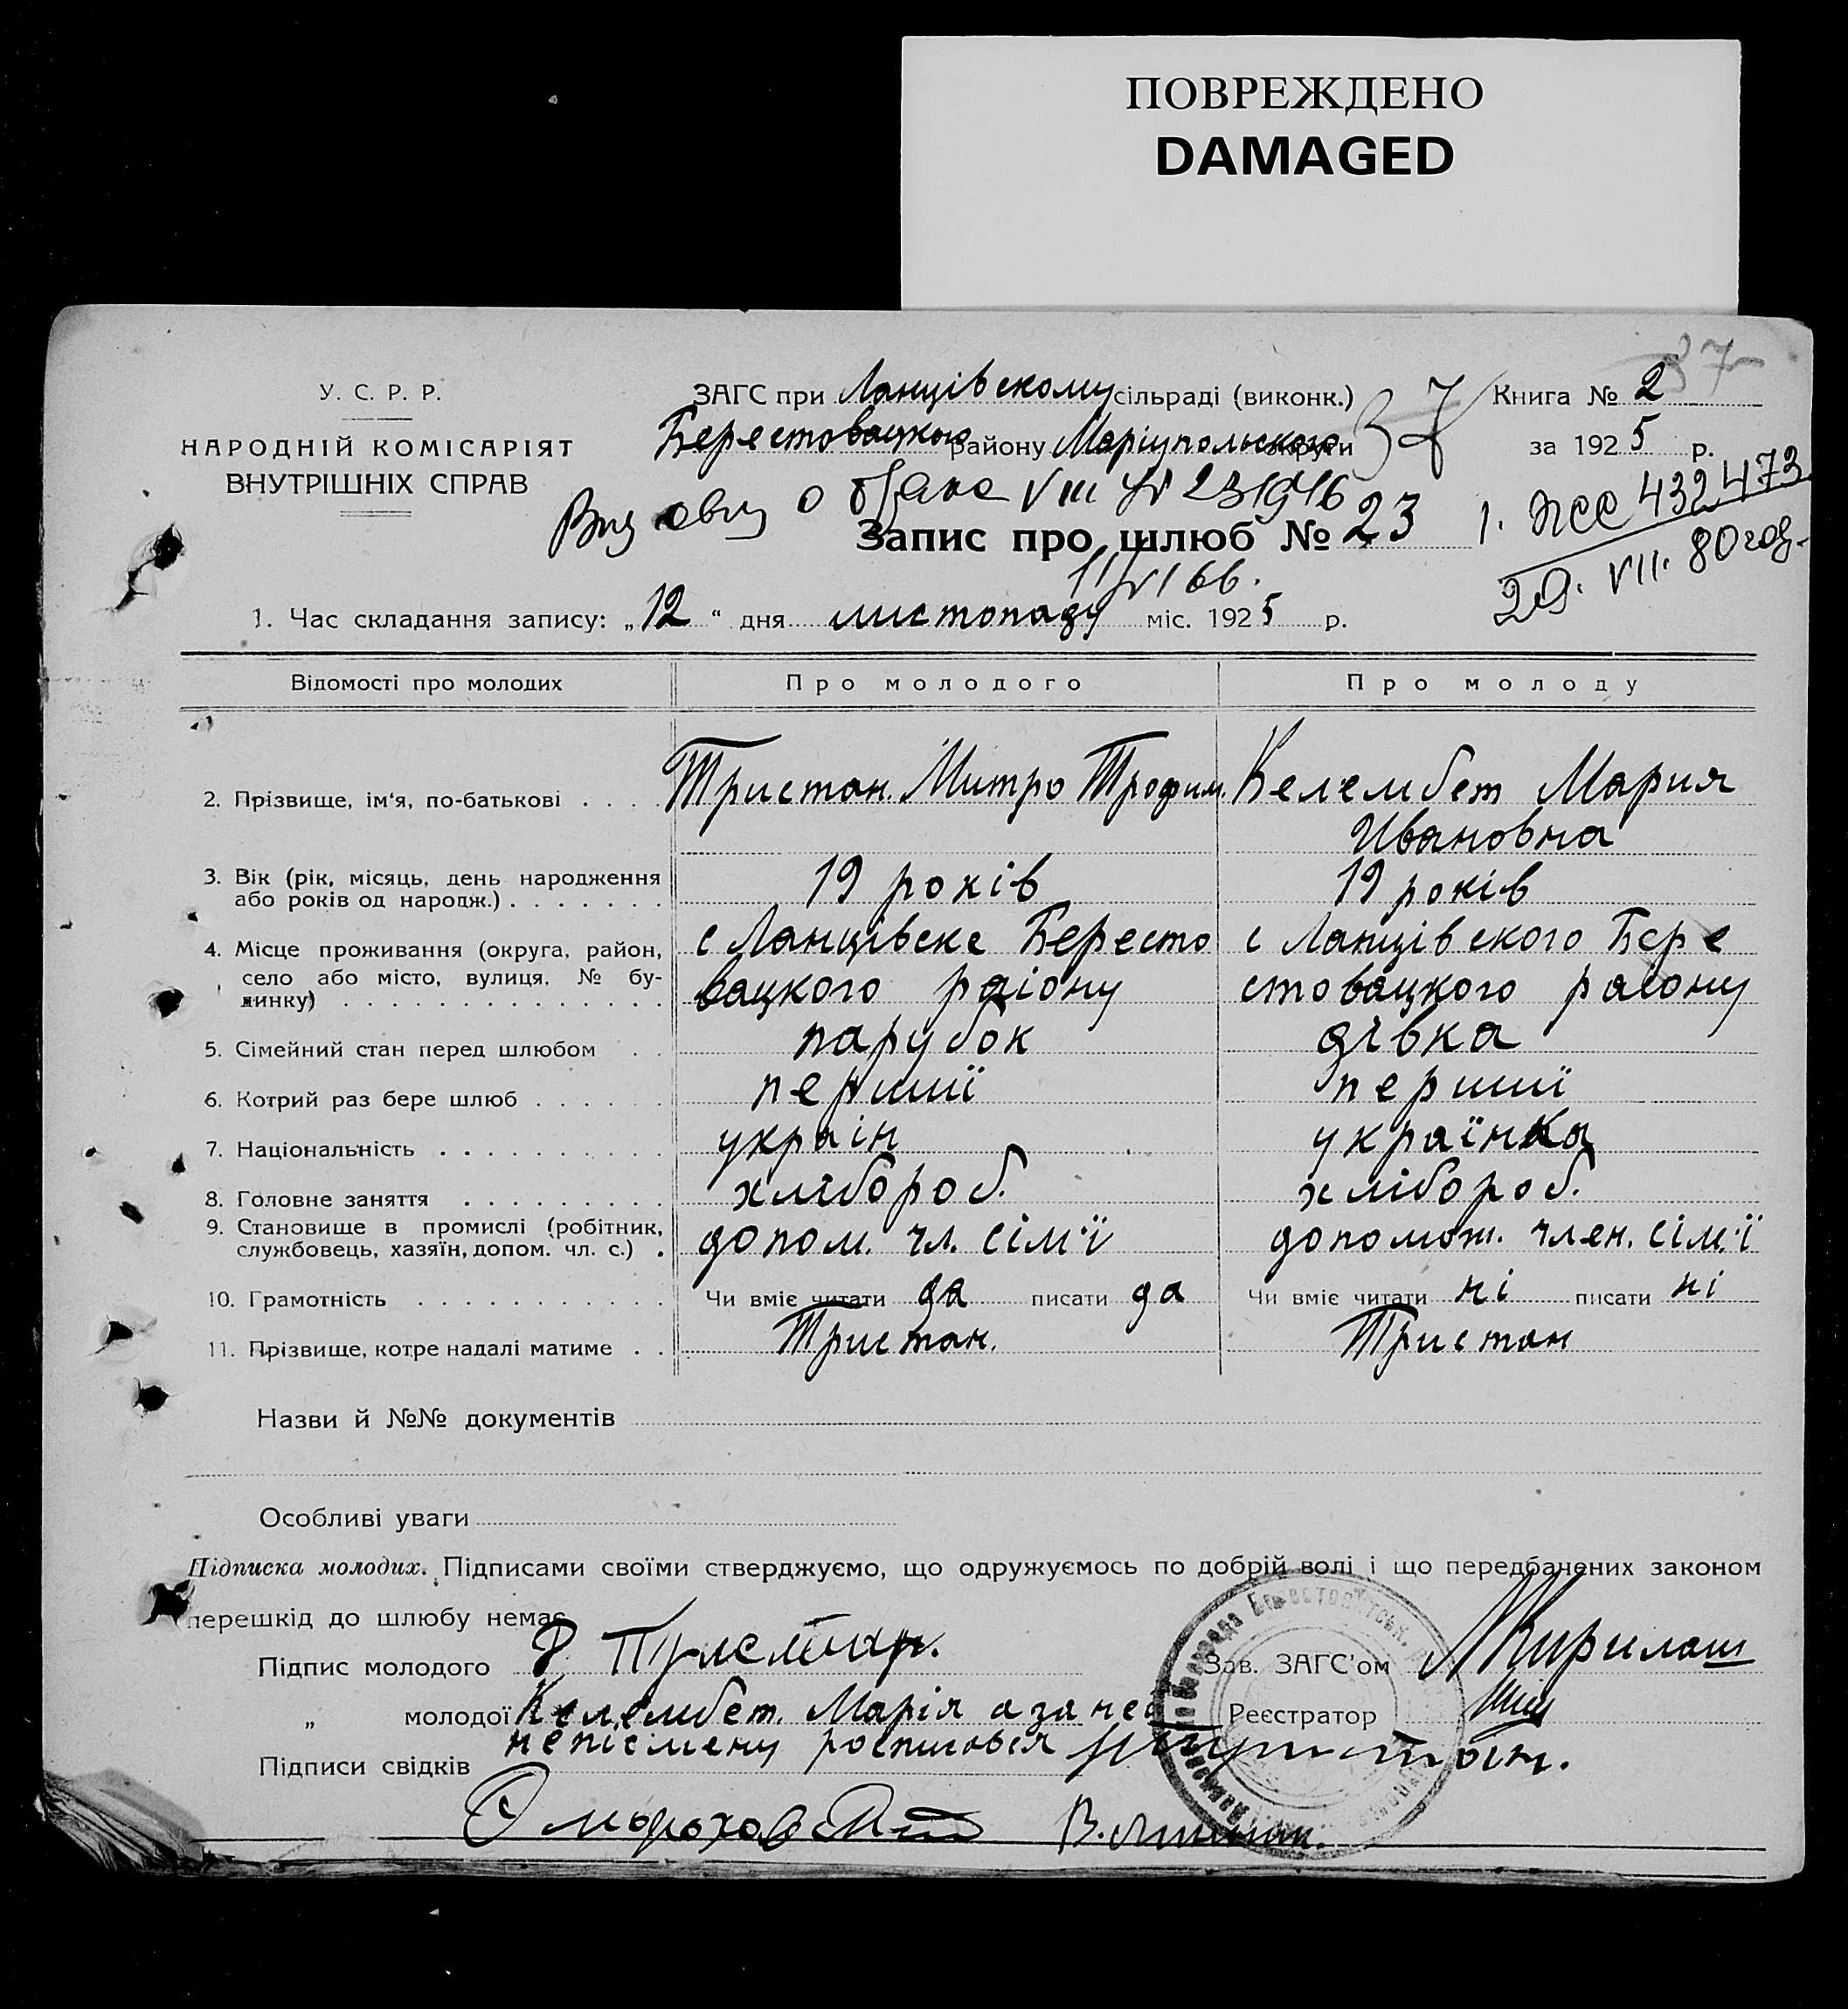 ПОВРЕЖДЕНО
DAMAGED
37
У. С. Р. Р.
НАРОДНІЙ КОМІСАРІЯТ
ВНУТРІШНІХ СПРАВ
ЗАГС при Ланцівскому сільраді (виконк.) 37 Книга № 2
Берестовацкого району Маріупольского округи за 1925 р.
о браке VIII
Запис про шлюб № 23
432473
29. VII. 80 год.
1. Час складання запису: „12“ дня листопаду міс. 1925 р.
Відомості про молодих Про молодого Про молоду
2. Прізвище, ім'я, по-батькові Тристан. Митро Трофим. Келембет Мария
Ивановна
3. Вік (рік, місяць, день народження
або років од народж.) 19 років 19 років
4. Місце проживання (округа, район, с Ланцівске Бересто с Ланцівского Бере
село або місто, вулиця, № бу-
динку) вацкого раіону стовацкого раіону
5. Сімейний стан перед шлюбом парубок дівка
6. Котрий раз бере шлюб перший перший
7. Національність украін українка
8. Головне заняття хлібороб. хлібороб.
9. Становище в промислі (робітник,
службовець, хазяїн, допом. чл. с.) допом. чл. сім'ї допомож. член. сім'ї
10. Грамотність Чи вміє читати да писати да Чи вміє читати ні писати ні
11. Прізвище, котре надалі матиме Тристан. Тристан
Назви й №№ документів
Особливі уваги
Підписка молодих. Підписами своїми стверджуємо, що одружуємось по добрій волі і що передбачених законом
перешкід до шлюбу немає
Підпис молодого Зав. ЗАГС'ом Кирилаш
„ молодої Келембет. Марія а за неё Реєстратор
неписмену росписовся
Підписи свідків